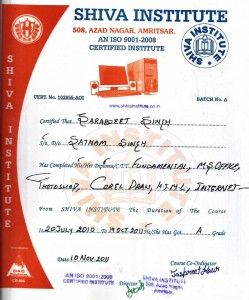 SHIVA INSTITUTE
508, AZAD NAGAR, AMRITSAR.
AN ISO 9001-2008
CERTIFIED INSTITUTE
SHIVA INSTITUTE
SHIVA INSTITUTE
www.shivainstitute.co.in
CERT. No. 102855-AOI
BATCH No. A
Certified That Sarabjeet Singh
S/o, D/o Satnam Singh
Has Completed His/Her Diploma/CTT. Fundamental, M.S. Office,
Photoshop, Corel Draw, H.T.M.L, Internet
From SHIVA INSTITUTE The Duration of the Course
is 20 July 2010 to 19 Oct 2011 He/She Has Got A Grade
Date 10 Nov 2011
Course Co-Ordinator
AN ISO 9001-2008
CERTIFIED INSTITUTE
Director
SHIVA INSTITUTE
508, Azad Nagar,